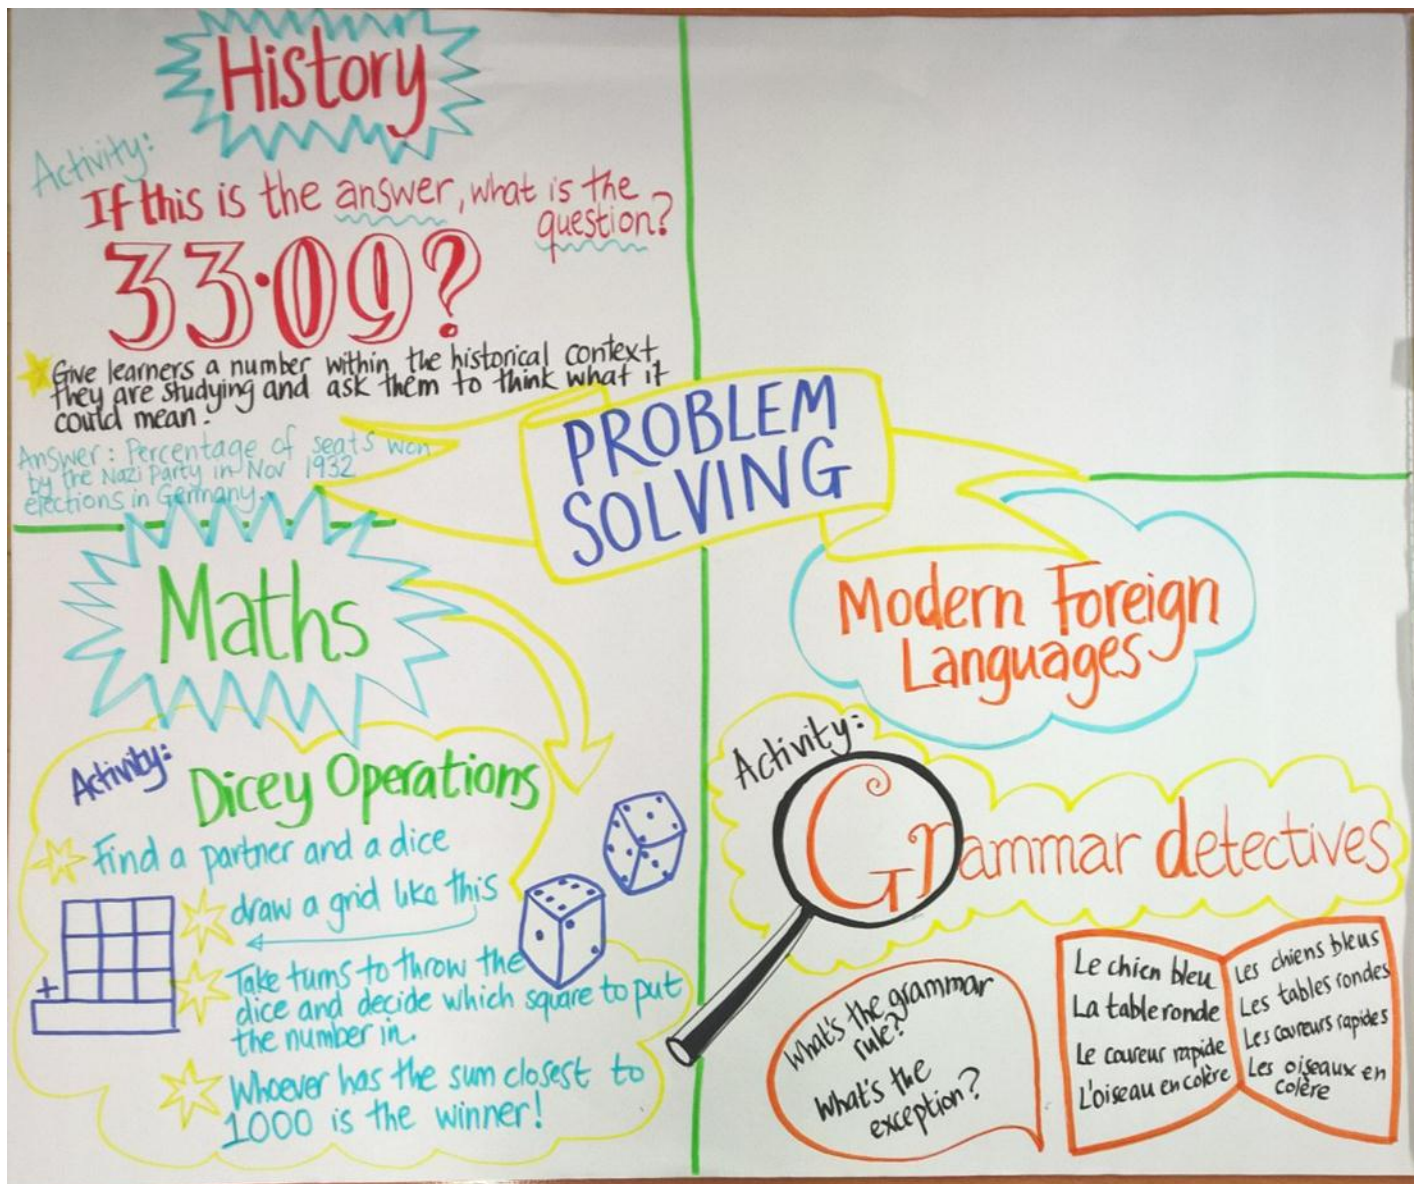 History
Activity:
If this is the answer, what is the
question?
33.09?
Give learners a number within the historical context
they are studying and ask them to think what it
could mean.
Answer: Percentage of seats won
by the Nazi Party in Nov 1932
elections in Germany.
PROBLEM
SOLVING
Maths
Activity:
Dicey Operations
Find a partner and a dice
draw a grid like this
+
Take turns to throw the
dice and decide which square to put
the number in.
Whoever has the sum closest to
1000 is the winner!
Modern Foreign
Languages
Activity:
Grammar detectives
What's the grammar
rule?
What's the
exception?
Le chien bleu
La table ronde
Le coureur rapide
L'oiseau en colère
Les chiens bleus
Les tables rondes
Les coureurs rapides
Les oiseaux en
colère